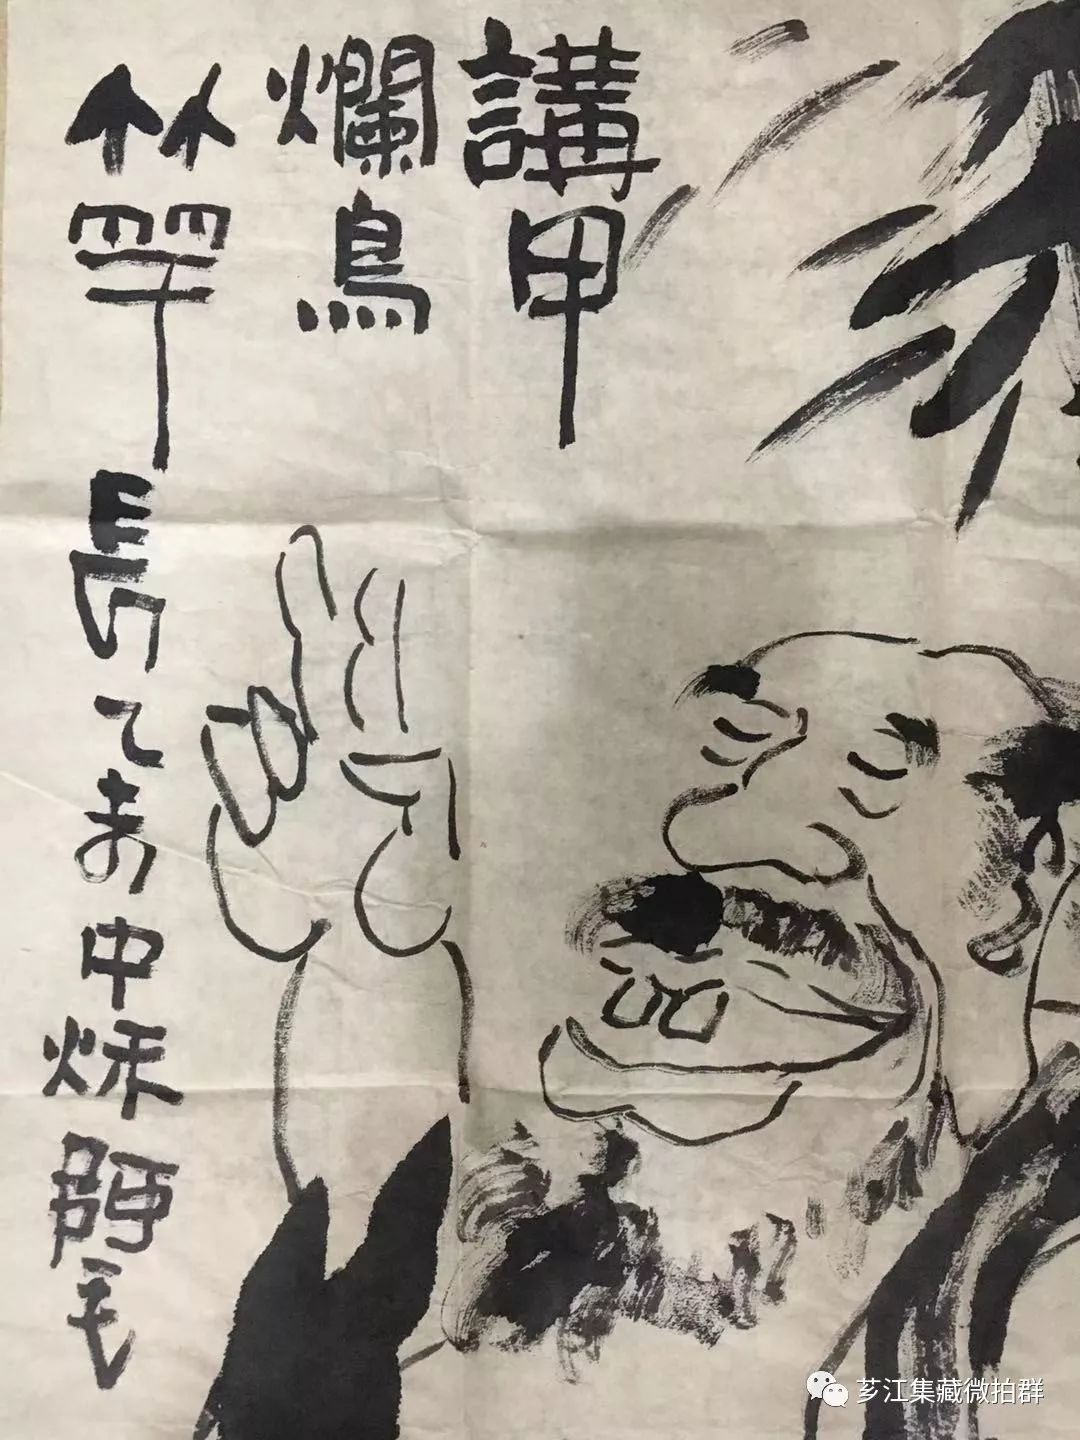 講甲
爛鳥
長乙未中秋
芗江集藏微拍群